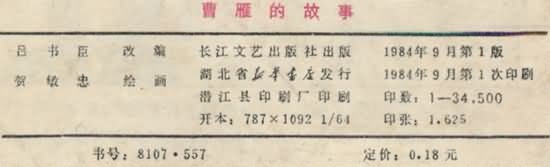 曹雁的故事
吕书臣 改编 长江文艺出版社出版 1984年9月第1版
贺敏忠 绘画 湖北省新华书店发行 1984年9月第1次印刷
潜江县印刷厂印刷 印数：1—34,500
开本：787×1092 1/64 印张：1.625
书号：8107·557 定价：0.18元